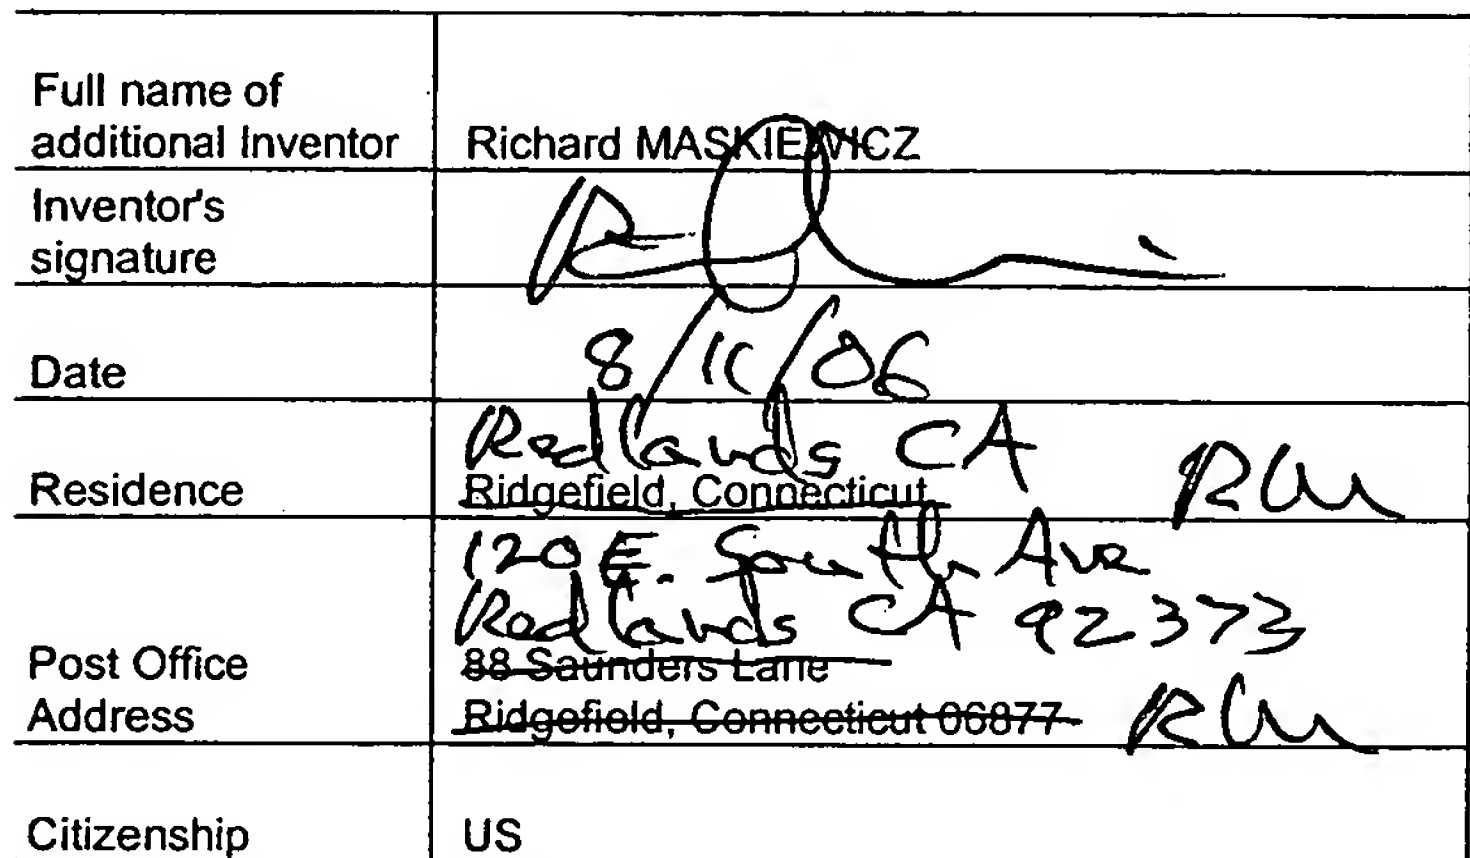 Full name of
additional Inventor
Richard MASKIEWICZ
Inventor's
signature
Date
8/11/06
Residence
Redlands CA
Ridgefield, Connecticut
RM
Post Office
Address
120 E. South Ave
Redlands CA 92373
88 Saunders Lane
Ridgefield, Connecticut 06877
RM
Citizenship
US